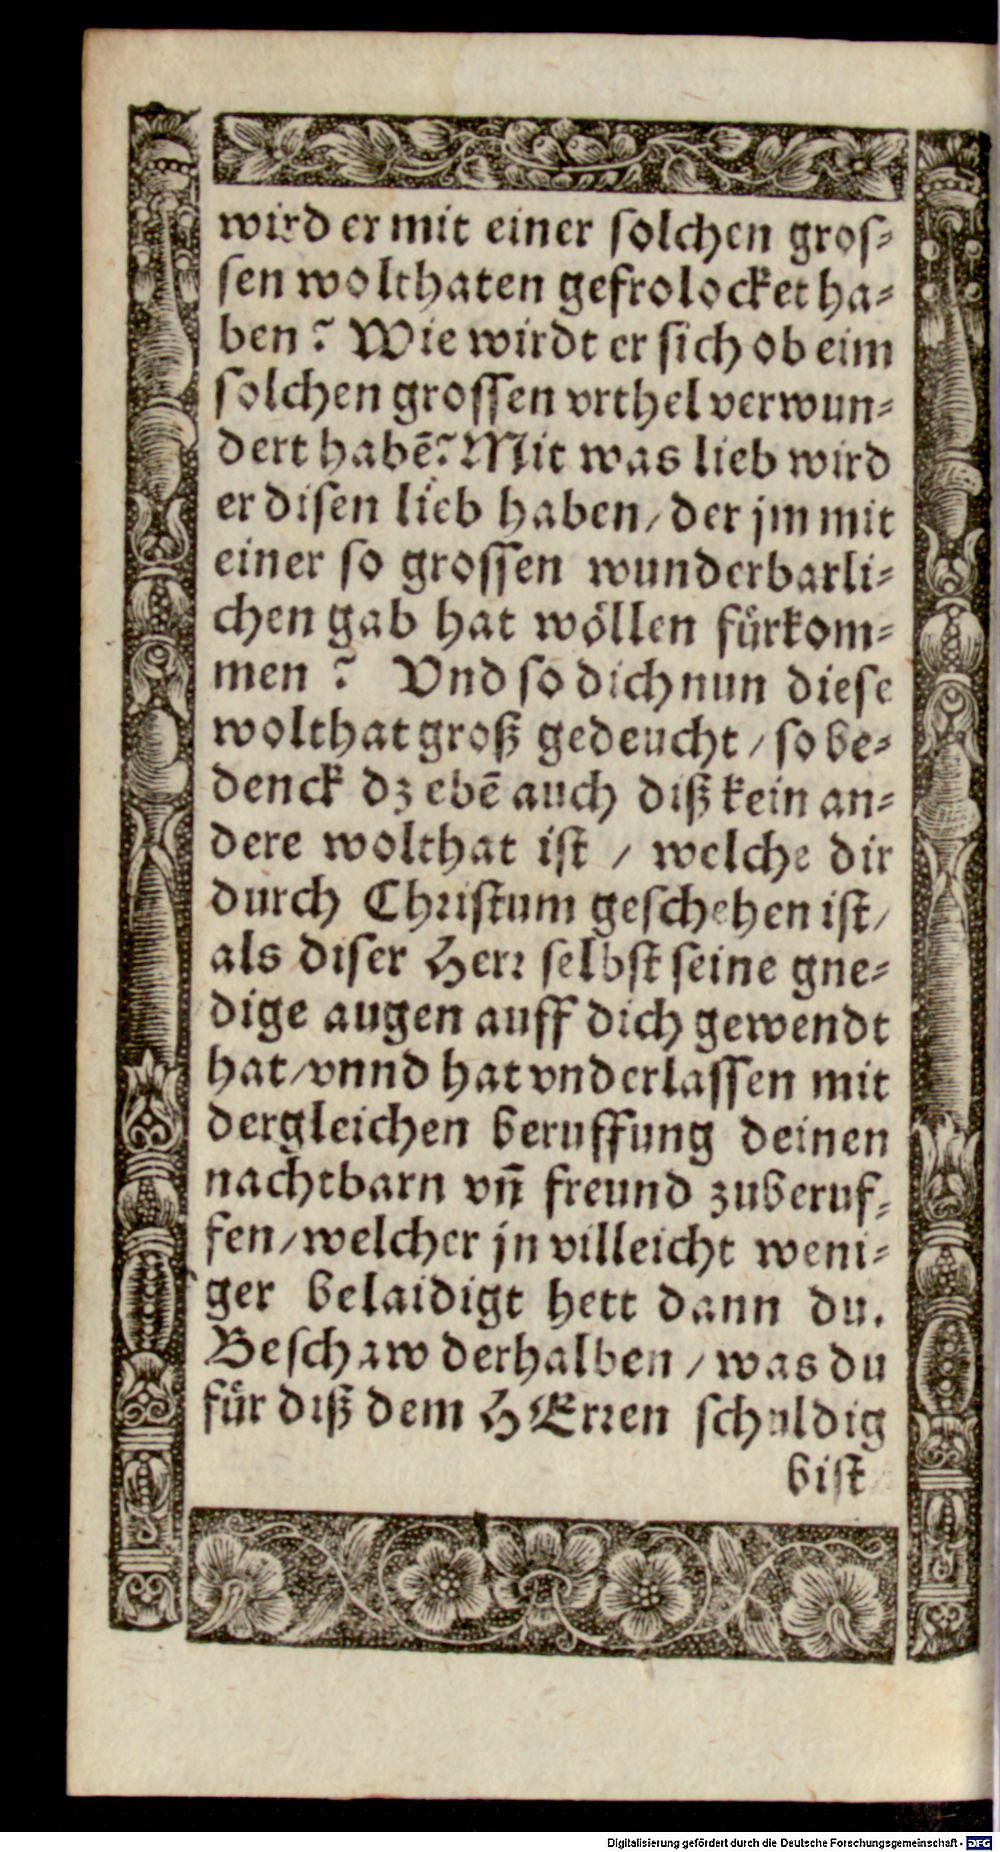 wird er mit einer solchen gros⸗
sen wolthaten gefrolocket ha⸗
ben? Wie wirdt er sich ob eim
solchen grossen vrthel verwun⸗
dert habē? Mit was lieb wird
er disen lieb haben / der jm mit
einer so grossen wunderbarli⸗
chen gab hat wöllen fürkom⸗
men? Vnd so dich nun diese
wolthat groß gedeucht / so be⸗
denck dz ebē auch diß kein an⸗
dere wolthat ist / welche dir
durch Christum geschehen ist /
als diser Herr selbst seine gne⸗
dige augen auff dich gewendt
hat / vnnd hat vnderlassen mit
dergleichen beruffung deinen
nachtbarn vñ freund zuberuf⸗
fen / welcher jn villeicht weni⸗
ger belaidigt hett dann du.
Beschaw derhalben / was du
für diß dem HErren schuldig
bist
Digitalisierung gefördert durch die Deutsche Forschungsgemeinschaft - DFG